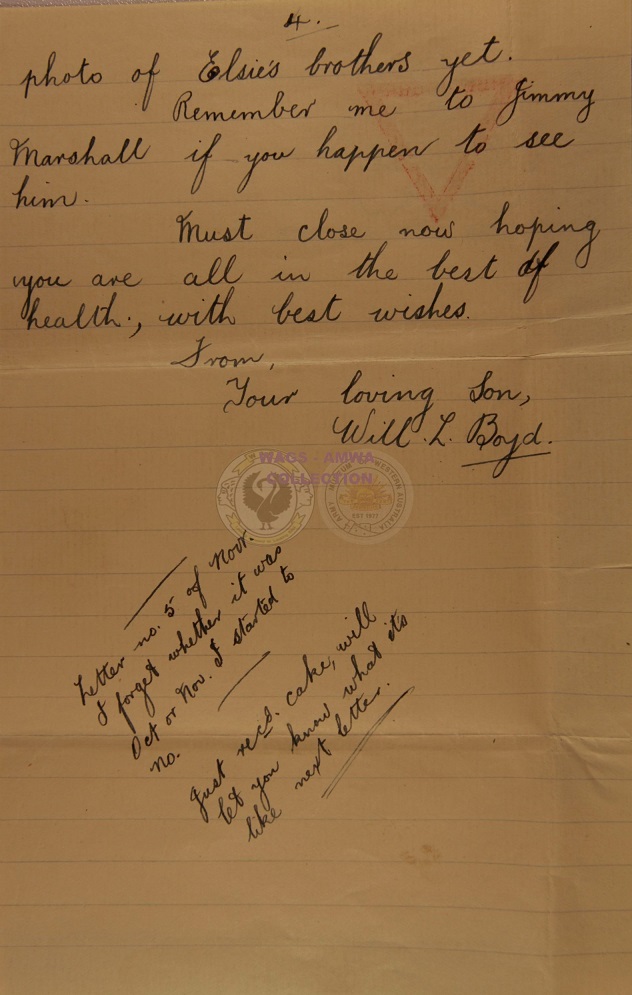 4.
photo of Elsie's brothers yet.
Remember me to Jimmy
Marshall if you happen to see
him.
Must close now hoping
you are all in the best of
health., with best wishes.
From,
Your loving Son,
Will. L. Boyd.
WAGS - AMWA
COLLECTION
Letter no. 5 of Novr.
I forget whether it was
Oct or Nov. I started to
no.
Just recd. cake, will
let you know what its
like next letter.